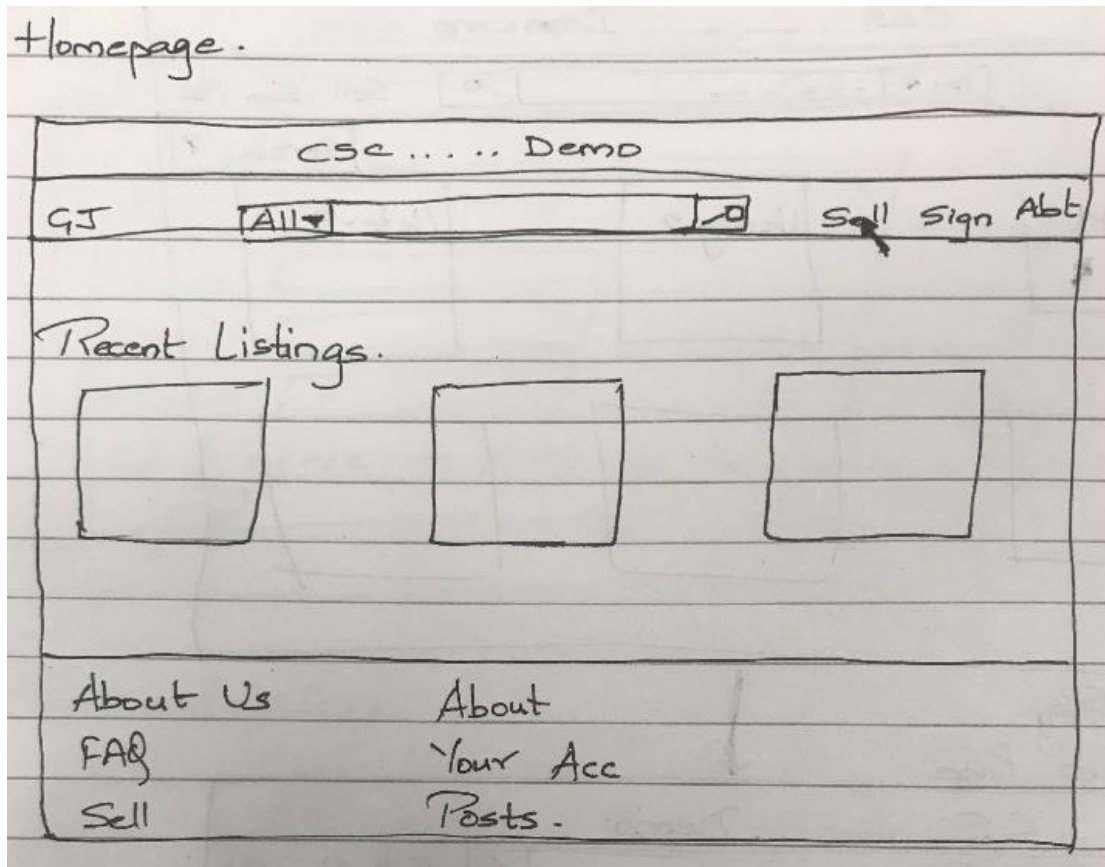 Homepage.
CSC ..... Demo
GJ All Sell Sign Abt
Recent Listings.
About Us About
FAQ Your Acc
Sell Posts.